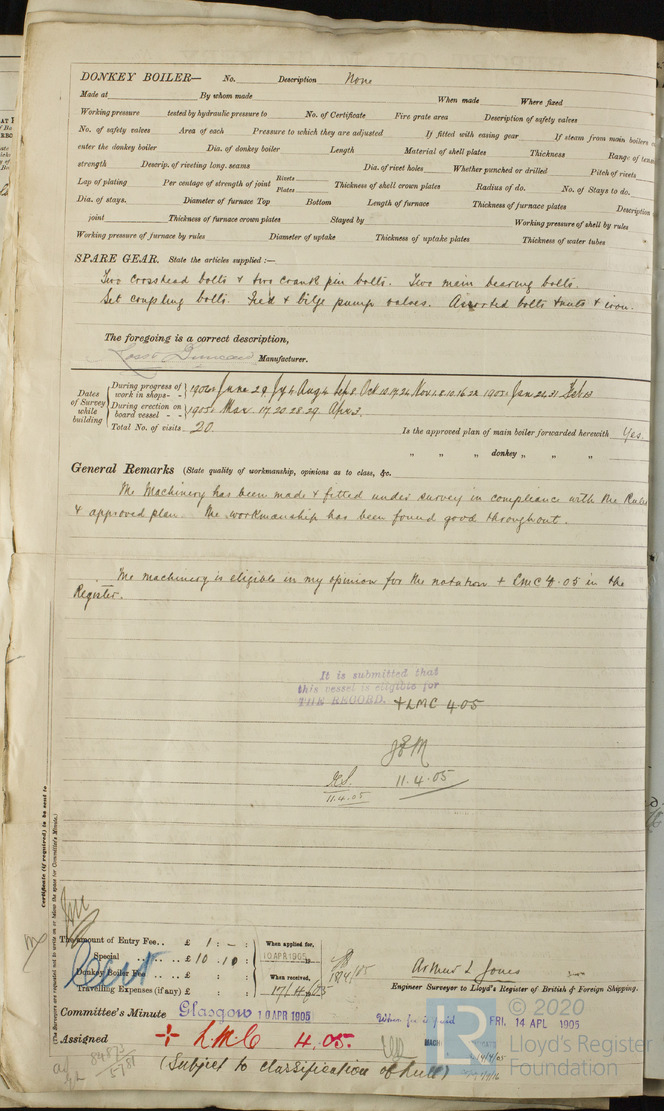 DONKEY BOILER— No. Description None
Made at By whom made When made Where fixed
Working pressure tested by hydraulic pressure to No. of Certificate Fire grate area Description of safety valves
No. of safety valves Area of each Pressure to which they are adjusted If fitted with easing gear If steam from main boilers
enter the donkey boiler Dia. of donkey boiler Length Material of shell plates Thickness Range of
strength Descrip. of riveting long. seams Dia. of rivet holes Whether punched or drilled Pitch of rivets
Lap of plating Per centage of strength of joint Rivets Plates Thickness of shell crown plates Radius of do. No. of Stays to do.
Dia. of stays. Diameter of furnace Top Bottom Length of furnace Thickness of furnace plates Description
joint Thickness of furnace crown plates Stayed by Working pressure of shell by rules
Working pressure of furnace by rules Diameter of uptake Thickness of uptake plates Thickness of water tubes
SPARE GEAR. State the articles supplied :—
Two crosshead bolts & two crank pin bolts. Two main bearing bolts.
Set coupling bolts. Feed & bilge pump valves. Assorted bolts & nuts & iron.
The foregoing is a correct description,
Ross & Duncan Manufacturer.
Dates of Survey while building
During progress of work in shops - - 1904: June 29 July Aug 4 Sep 8 Oct 10.17.26 Nov 1.8.10.16.22 1905: Jan 24.31 Feb 13
During erection on board vessel - - 1905: Mar. 17.20.28.29 Apr 3.
Total No. of visits 20. Is the approved plan of main boiler forwarded herewith Yes.
" " " donkey " " "
General Remarks (State quality of workmanship, opinions as to class, &c.
The Machinery has been made & fitted under survey in compliance with the Rules
& approved plan The workmanship has been found good throughout.
The machinery is eligible in my opinion for the notation + LMC 4.05 in the
Register.
It is submitted that
this vessel is eligible for
THE RECORD. + LMC 4.05
11.4.05
11.4.05
Certificate (if required) to be sent to
(The Surveyors are requested not to write on or below the space for Committee's Minute.)
The amount of Entry Fee.. £ 1 : - : When applied for,
Special £ 10 . 10 : 10 APR 1905
Donkey Boiler Fee £ : : When received,
Travelling Expenses (if any) £ : : 17/4/05
Arthur L Jones
Engineer Surveyor to Lloyd's Register of British & Foreign Shipping.
Committee's Minute Glasgow 10 APR 1905 FRI. 14 APL 1905
Assigned + L.M.C 4.05.
(Subject to classification of hull)
© 2020
Lloyd's Register
Foundation